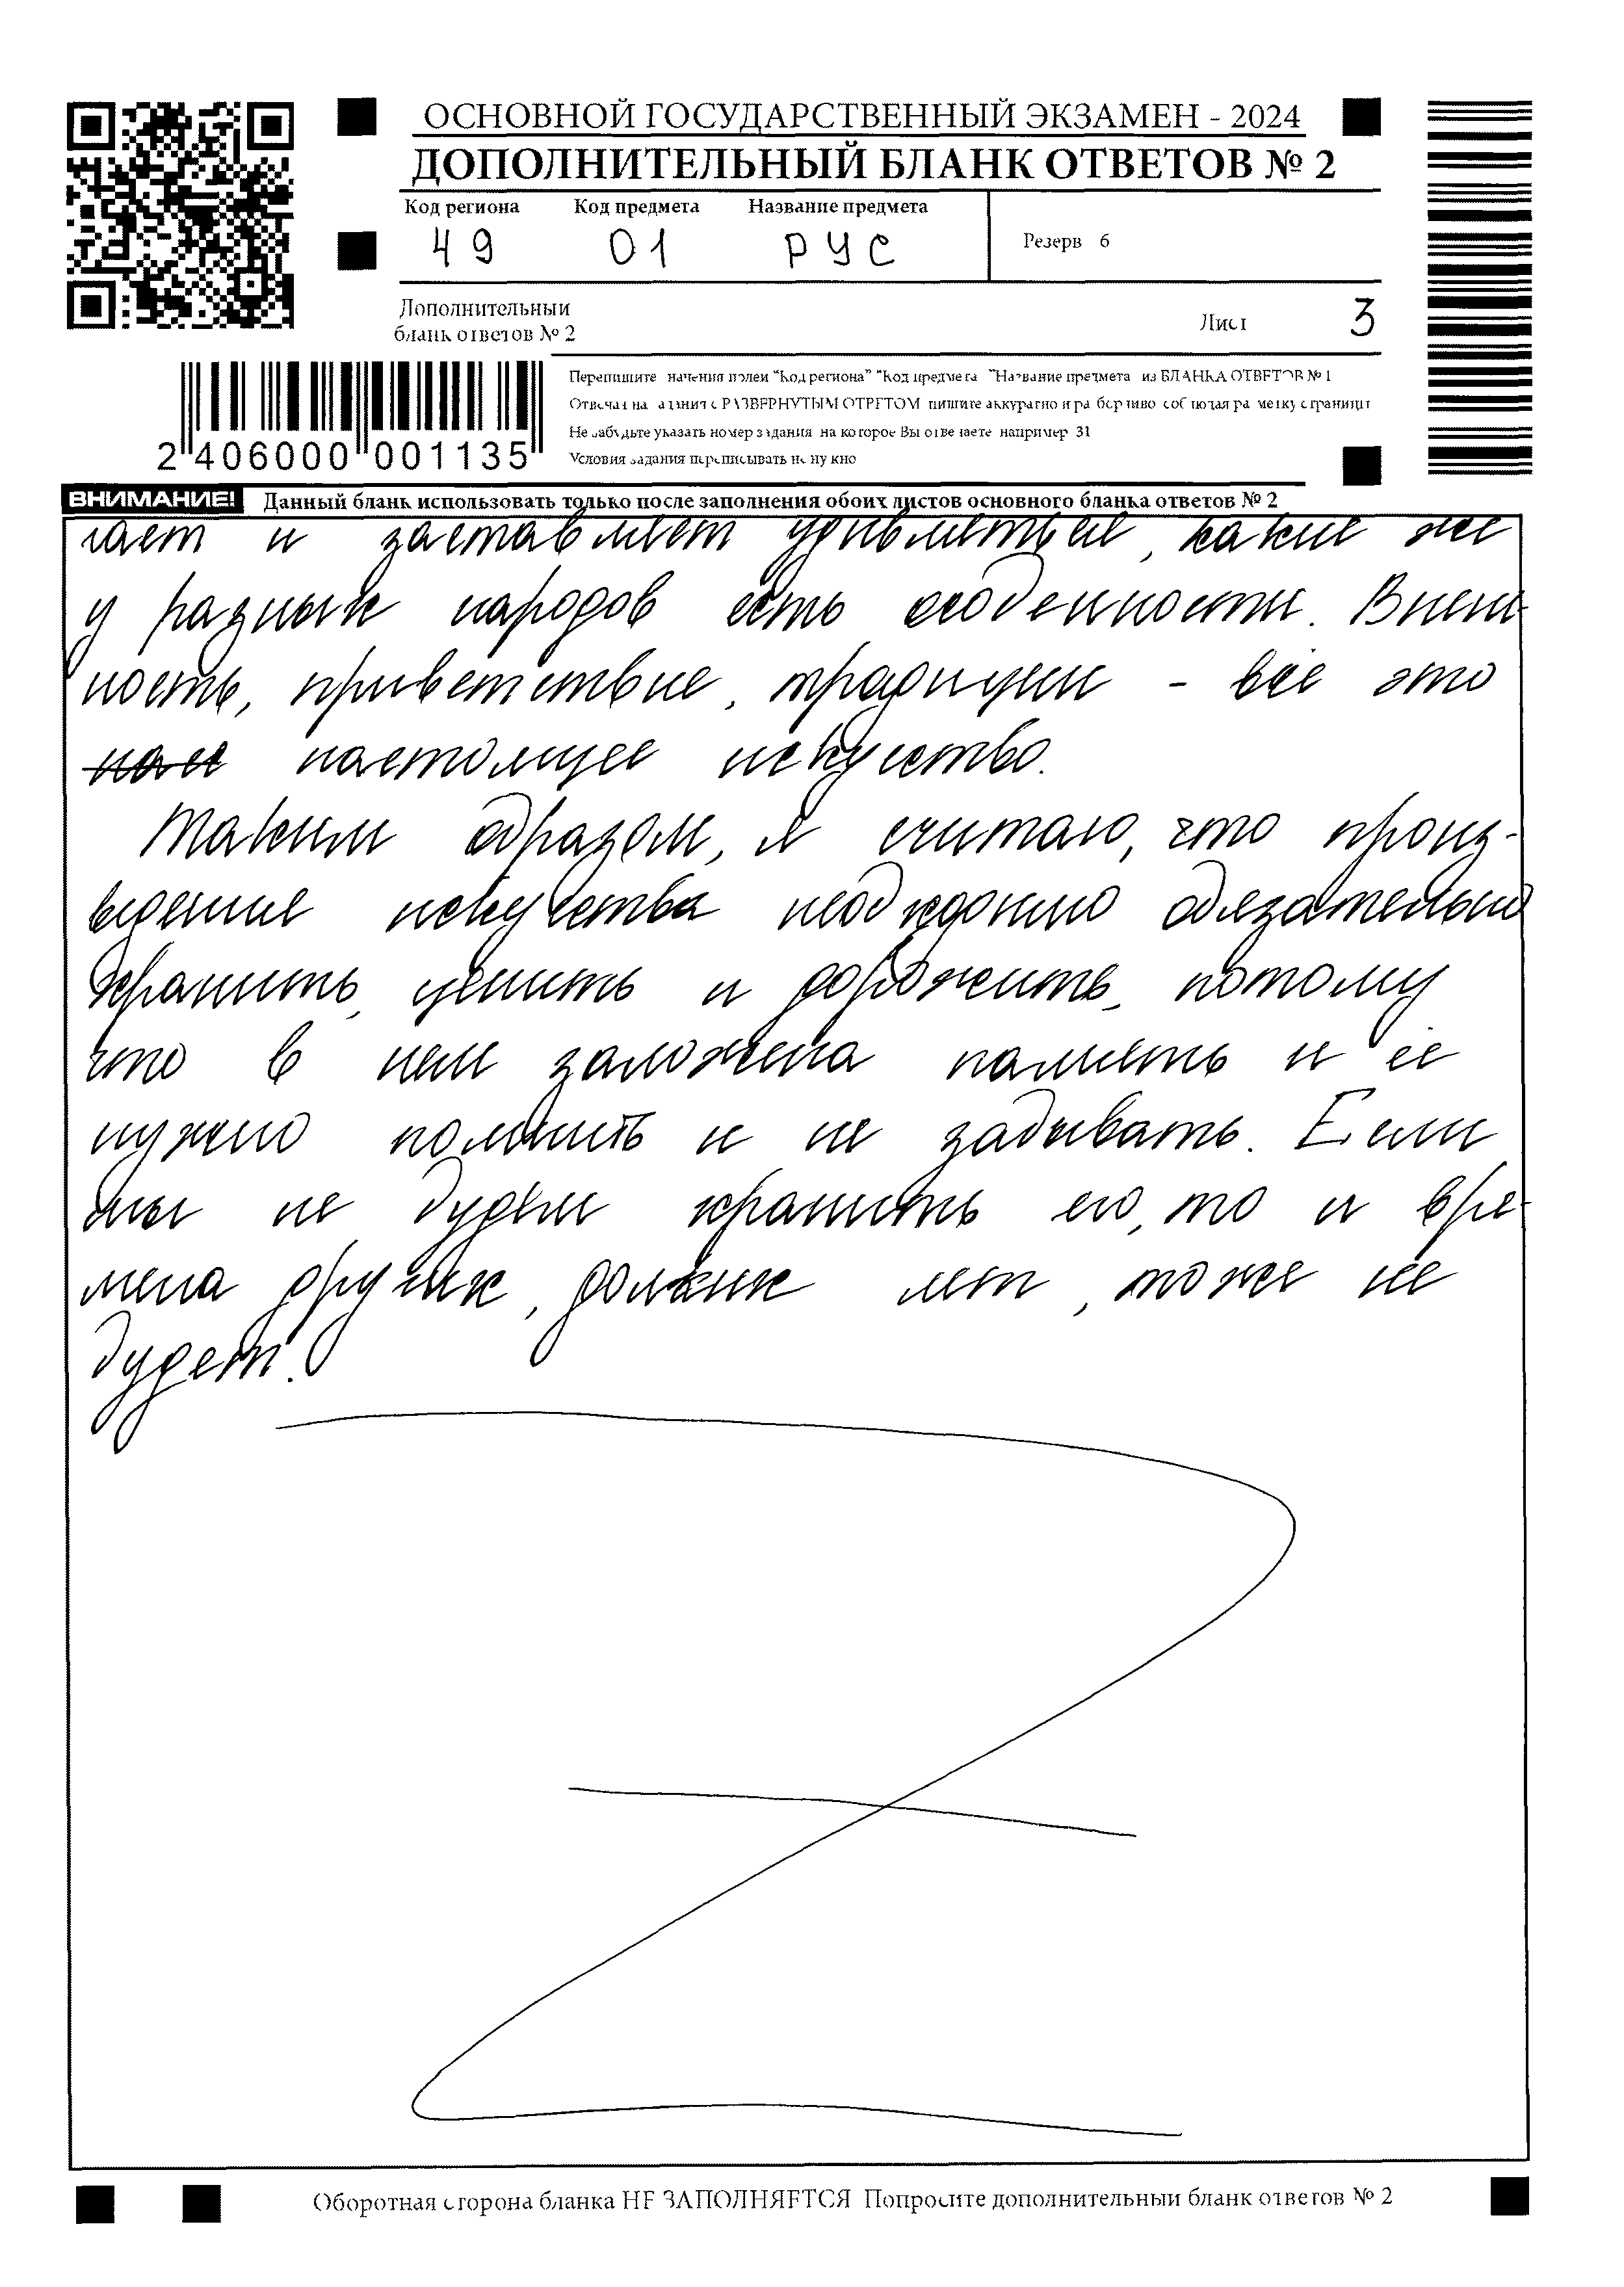 ОСНОВНОЙ ГОСУДАРСТВЕННЫЙ ЭКЗАМЕН - 2024
ДОПОЛНИТЕЛЬНЫЙ БЛАНК ОТВЕТОВ № 2
Код региона Код предмета Название предмета
49 01 РУС
Резерв 6
Дополнительный
бланк ответов № 2
Лист 3
Перепишите значения полей "Код региона" "Код предмета" "Название предмета" из БЛАНКА ОТВЕТОВ № 1
Отвечая на задания с РАЗВЕРНУТЫМ ОТВЕТОМ пишите аккуратно и разборчиво соблюдая разметку страницы
Не забудьте указать номер задания на которое Вы отвечаете например 31
Условия задания переписывать не нужно
2 406000 001135
ВНИМАНИЕ! Данный бланк использовать только после заполнения обоих листов основного бланка ответов № 2
гает и заставляет удивляться, какие же
у разных народов есть особенности. Внеш-
ность, приветствие, традиции - всё это
настоящее искуство.
Таким образом, я считаю, что произ-
ведение искуства неободимо обязательно
хранить, ценить и дорожить, потому
что в нем заложена память и её
нужно помнить и не забывать. Если
мы не будем хранить его, то и вре-
мена других, должих лет, тоже не
будет.
Оборотная сторона бланка НЕ ЗАПОЛНЯЕТСЯ Попросите дополнительный бланк ответов № 2